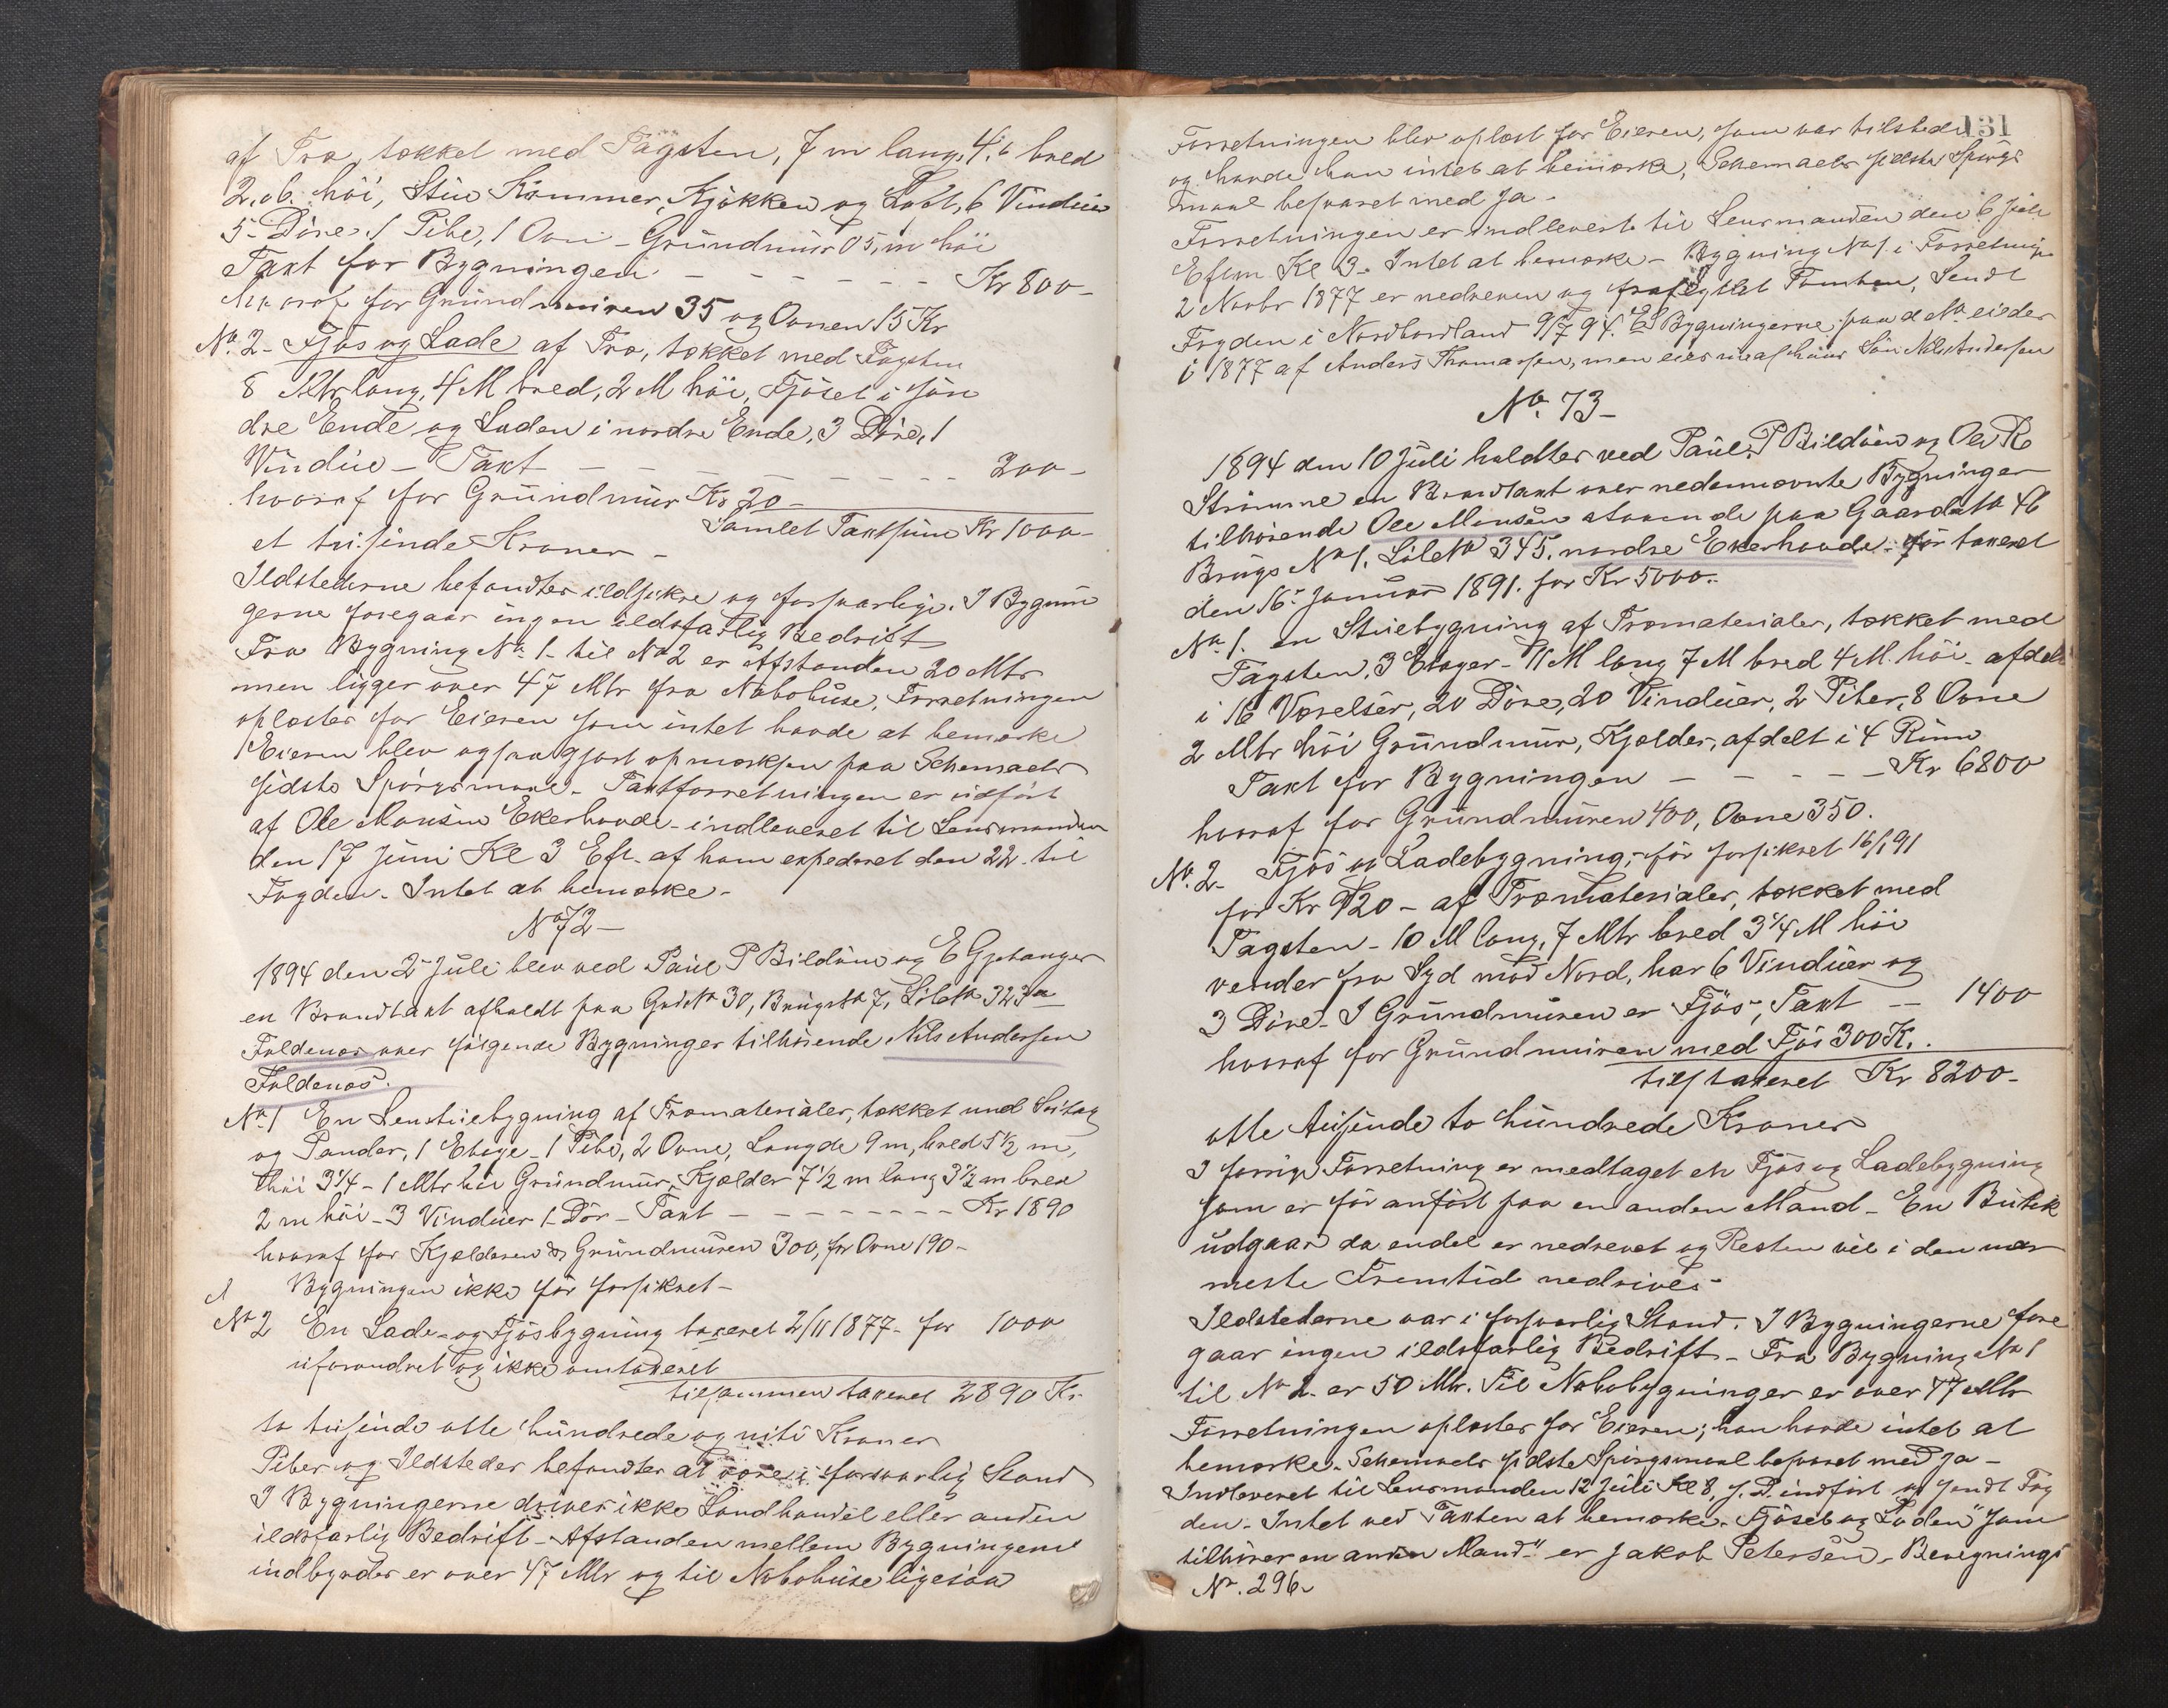 af Træ, tækket med Tagsten, 7 m lang, 4,6 bred
2,06 høi, Stue Kammer, Kjøkken og Loft, 6 Vinduer
5 Døre, 1 Pibe, 1 Ovn - Grundmur 0,5 m høi
Taxt for Bygningen - - - - - - Kr 800 -
hvoraf for Grundmuren 35 og Ovnen 15 Kr
No. 2 - Fjøs og Lade af Træ, tækket med Tagsten
8 Mtr lang, 4 M bred, 2 M høi, Fjøset i søn
dre Ende og Laden i nordre Ende, 3 Døre, 1
Vindue - Taxt - - - - - - 200 -
hvoraf for Grundmur Kr 20 -
Samlet Taxtsum Kr 1000 -
et tusinde Kroner -
Ildstederne befandtes ildsikre og forsvarlige. I Bygnin
gerne foregaar ingen ildsfarlig Bedrift
Fra Bygning No 1 - til No 2 er Afstanden 20 Mtr
men ligger over 47 Mtr fra Nabohuse. Forretningen
oplæstes for Eieren som intet havde at bemærke
Eieren blev ogsaa gjort opmærksom paa Schemaets
sidste Spørgsmaal - Taxtforretningen er udført
af Ole Monsen Ekerhovde - indleveret til Lensmanden
den 17 Juni Kl 3 Eft. af ham expederet den 22 - til
Fogden. Intet at bemærke -
No 72 -
1894 den 2 Juli blev ved Paul P Bildøen og E Gjetanger
en Brandtaxt afholdt paa Gards No 30, Brugs No 7, Løbe No 323a
Foldenæs over følgende Bygninger tilhørende Nils Andersen
Foldenæs.
No 1 En Lemstuebygning af Træmaterialer, tækket med
og Pander, 1 Etage - 1 Pibe, 2 Ovne, Længde 9 m, bred 5 1/2 m,
høi 3 1/4 - 1 Mtr høi Grundmur, Kjælder 7 1/2 m lang 3 1/2 m bred
2 m høi - 3 Vinduer 1 Dør - Taxt - - - - - - - - Kr 1890
hvoraf for Kjælderen & Grundmuren 300, for Ovne 190 -
Bygningen ikke før forsikret -
No 2 En Lade - og Fjøsbygning taxeret 2/11 1877 - for 1000
uforandret og ikke omtaxeret
tilsammen taxeret 2890 Kr.
to tusinde otte hundrede og niti Kroner
Piber og Ildsteder befandtes at være i forsvarlig Stand
I Bygningerne drives ikke Landhandel eller anden
ildsfarlig Bedrift - Afstanden mellem Bygningerne
indbyrdes er over 47 Mtr og til Nabohuse ligesaa
131
Forretningen blev oplæst for Eieren, som var tilstede
og havde han intet at bemærke, Schemaets sidste Spørgs
maal besvaret med Ja -
Forretningen er indleveret til Lensmanden den 6 Juli
Eftm Kl 3 - Intet at bemærke - Bygning No 1 i Forretning
2 Novbr 1877 er nedreven og fraflyttet Tomten, Sendt
Fogden i Nordhordland 9/7 94. Bygningerne paa d No eiedes
i 1877 af Anders Thomassen, men eies nu af hans Søn Nils Andersen
No. 73 -
1894 den 10 Juli holdtes ved Paul P Bildøen og Ole R
Strømme en Brandtaxt over nedennævnte Bygninger
tilhørende Ole Monsen staaende paa Gaards No 46
Brugs No 1, Løbe No 345, nordre Ekerhovde - før taxeret
den 16 Januar 1891 for Kr 5000 -
No 1. en Stuebygning af Træmaterialer, tækket med
Tagsten, 3 Etager - 11 M lang 7 M bred 4 M. høi - afdelt
i 16 Værelser, 20 Døre, 20 Vinduer, 2 Piber, 8 Ovne
2 Mtr høi Grundmur, Kjælder, afdelt i 4 Rum
Taxt for Bygningen - - - - - Kr 6800
hvoraf for Grundmuren 400, Ovne 350.
No. 2 - Fjøs og Ladebygning, før forsikret 16/1 91
for Kr 920 - af Træmaterialer, tækket med
Tagsten - 10 M lang, 7 Mtr bred 3 1/4 M høi
vender fra Syd mod Nord, har 6 Vinduer og
3 Døre - I Grundmuren er Fjøs, Taxt - 1400
hvoraf for Grundmuren med Fjøs 300 Kr.
tils taxeret Kr 8200 -
otte tusinde to hundrede Kroner
I forrige Forretning er medtaget en Fjøs og Ladebygning
som er før anført paa en anden Mand - En Butik
udgaar da endel er nedrevet og Resten vil i den nær
meste Fremtid nedrives -
Ildstederne var i forsvarlig Stand. I Bygningerne fore
gaar ingen ildsfarlig Bedrift - Fra Bygning No 1
til No 2 - er 50 Mtr. Til Nabobygninger er over 47 Mtr
Forretningen oplæstes for Eieren; han havde intet at
bemærke. Schemaets sidste Spørgsmaal besvaret med Ja -
Indleveret til Lensmanden 12 Juli Kl 8, s. D. indført og sendt Fog
den - Intet ved Taxten at bemærke. Fjøset og Laden "som
tilhører en anden Mand" er Jakob Petersen, Bevegnings
No. 296 -